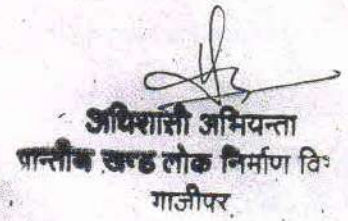 अधिशासी अभियन्ता
प्रान्तीय खण्ड लोक निर्माण वि
गाजीपर